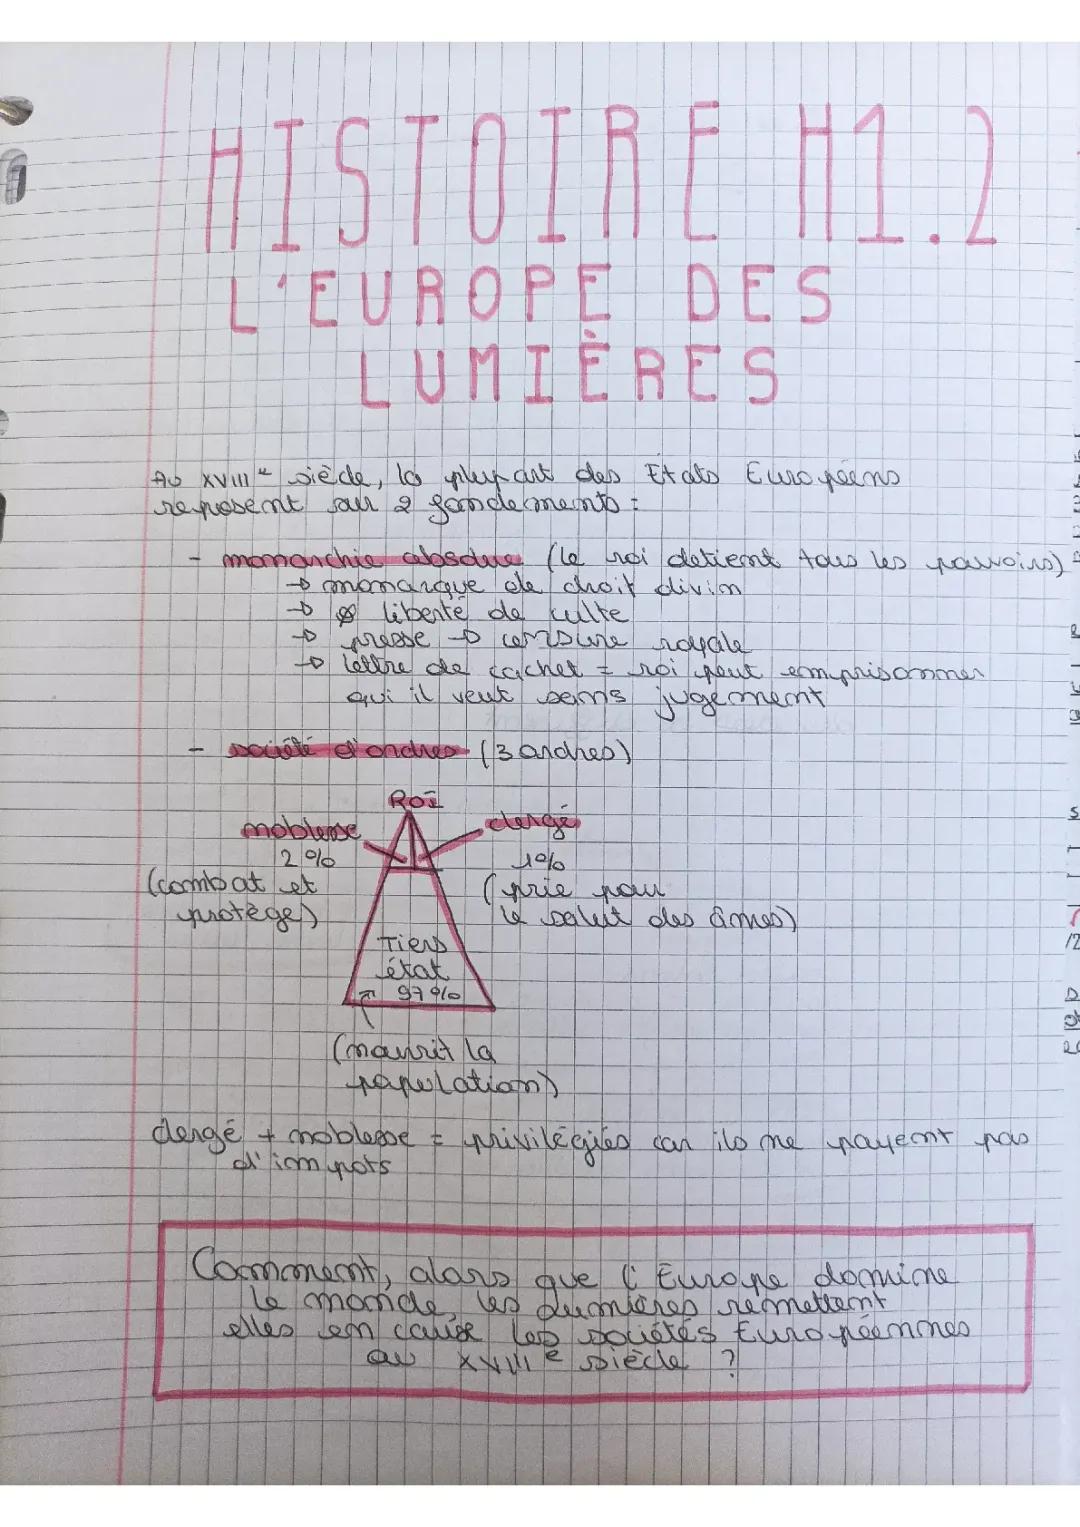 HISTOIRE H1.2
L'EUROPE DES
LUMIÈRES
Au XVIIIe siècle, la plupart des Etats Européens
reposent sur 2 fondements :
- monarchie absolue (le roi detient tous les pouvoirs)
→ monarque de droit divin
→ liberté de culte
→ presse → censure royale
→ lettre de cachet = roi peut emprisonner
qui il veut sans jugement
- société d'ordres (3 ordres)
ROI
noblesse
2%
(combat et
protège)
clergé
1%
(prie pour
le salut des âmes)
Tiers
état
97%
(nourrit la
population)
clergé + noblesse = privilégiés car ils ne payent pas
d'impots
Comment, alors que l'Europe domine
le monde, les Lumières remettent
elles en cause les sociétés Européennes
au XVIIIe siècle ?